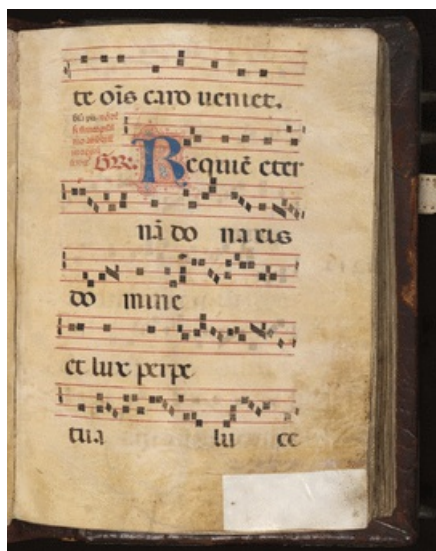 te oīs caro ueniet.
GR. Requiē eter
nā do na eis
do mine
et lux perpe
tua lu ce